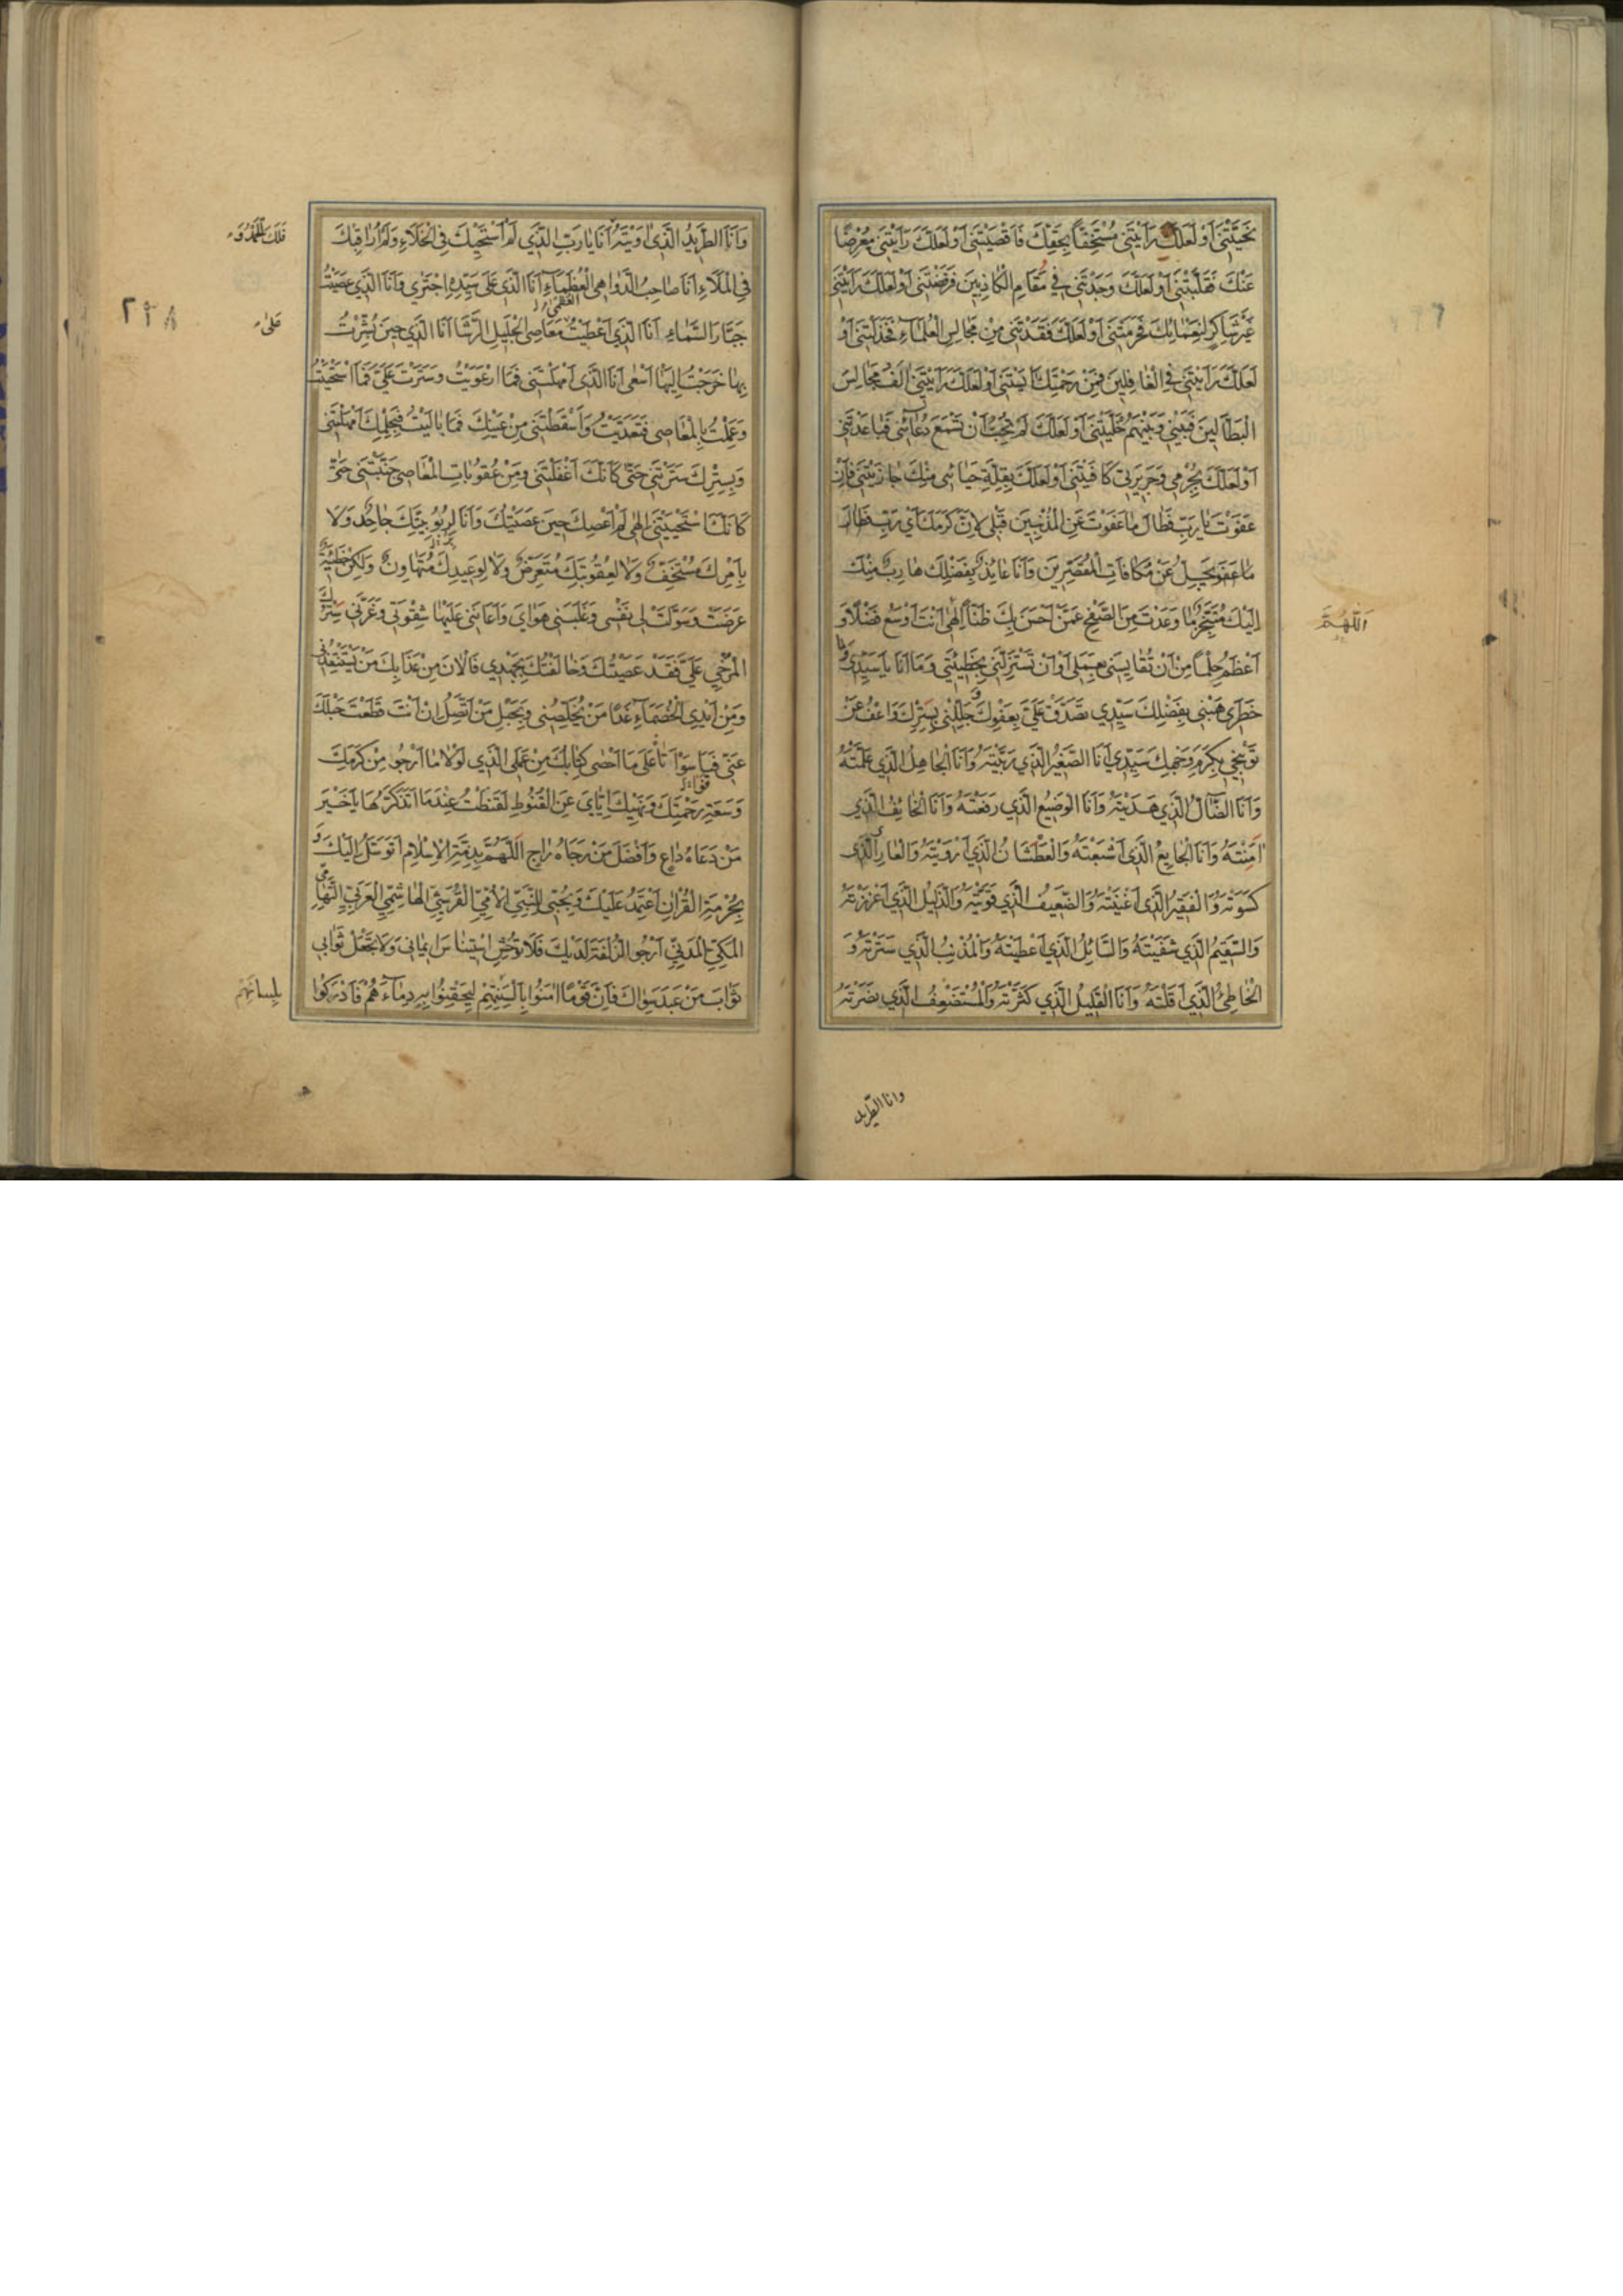 نَحَّيْتَنِي أَوْ لَعَلَّكَ رَأَيْتَنِي مُسْتَخِفّاً بِحَقِّكَ فَأَقْصَيْتَنِي أَوْ لَعَلَّكَ رَأَيْتَنِي مُعْرِضًا
عَنْكَ فَقَلَيْتَنِي أَوْ لَعَلَّكَ وَجَدْتَنِي فِي مَقَامِ الْكَاذِبِينَ فَرَفَضْتَنِي أَوْ لَعَلَّكَ رَأَيْتَنِي
غَيْرَ شَاكِرٍ لِنَعْمَائِكَ فَحَرَمْتَنِي أَوْ لَعَلَّكَ فَقَدْتَنِي مِنْ مَجَالِسِ الْعُلَمَاءِ فَخَذَلْتَنِي أَوْ
لَعَلَّكَ رَأَيْتَنِي فِي الْغَافِلِينَ فَمِنْ رَحْمَتِكَ آيَسْتَنِي أَوْ لَعَلَّكَ رَأَيْتَنِي آلَفُ مَجَالِسَ
الْبَطَّالِينَ فَبَيْنِي وَبَيْنَهُمْ خَلَّيْتَنِي أَوْ لَعَلَّكَ لَمْ تُحِبَّ أَنْ تَسْمَعَ دُعَائِي فَبَاعَدْتَنِي
أَوْ لَعَلَّكَ بِجُرْمِي وَجَرِيرَتِي كَافَيْتَنِي أَوْ لَعَلَّكَ بِقِلَّةِ حَيَائِي مِنْكَ جَازَيْتَنِي فَإِنْ
عَفَوْتَ يَا رَبِّ فَطَالَ مَا عَفَوْتَ عَنِ الْمُذْنِبِينَ قَبْلِي لِأَنَّ كَرَمَكَ أَيْ رَبِّ
عَنْ مُكَافَاتِ الْمُقَصِّرِينَ وَأَنَا عَائِذٌ بِفَضْلِكَ هَارِبٌ مِنْكَ
إِلَيْكَ مُتَنَجِّزٌ مَا وَعَدْتَ مِنَ الصَّفْحِ عَمَّنْ أَحْسَنَ بِكَ ظَنّاً إِلٰهِي أَنْتَ أَوْسَعُ فَضْلًا وَ
أَعْظَمُ حِلْمًا مِنْ أَنْ تُقَايِسَنِي بِعَمَلِي أَوْ أَنْ تَسْتَزِلَّنِي بِخَطِيئَتِي وَمَا أَنَا يَا سَيِّدِي وَمَا
خَطَرِي هَبْنِي بِفَضْلِكَ سَيِّدِي تَصَدَّقْ عَلَيَّ بِعَفْوِكَ وَجَلِّلْنِي بِسِتْرِكَ وَاعْفُ عَنْ
تَوْبِيخِي بِكَرَمِ وَجْهِكَ سَيِّدِي أَنَا الصَّغِيرُ الَّذِي رَبَّيْتَهُ وَأَنَا الْجَاهِلُ الَّذِي عَلَّمْتَهُ
وَأَنَا الضَّالُّ الَّذِي هَدَيْتَهُ وَأَنَا الْوَضِيعُ الَّذِي رَفَعْتَهُ وَأَنَا الْخَائِفُ الَّذِي
اٰمَنْتَهُ وَأَنَا الْجَايِعُ الَّذِي أَشْبَعْتَهُ وَالْعَطْشَانُ الَّذِي أَرْوَيْتَهُ وَالْعَارِي الَّذِي
كَسَوْتَهُ وَالْفَقِيرُ الَّذِي أَغْنَيْتَهُ وَالضَّعِيفُ الَّذِي قَوَّيْتَهُ وَالذَّلِيلُ الَّذِي أَعْزَزْتَهُ
وَالسَّقِيمُ الَّذِي شَفَيْتَهُ وَالسَّائِلُ الَّذِي أَعْطَيْتَهُ وَالْمُذْنِبُ الَّذِي سَتَرْتَهُ وَ
الْخَاطِئُ الَّذِي أَقَلْتَهُ وَأَنَا الْقَلِيلُ الَّذِي كَثَّرْتَهُ وَالْمُسْتَضْعَفُ الَّذِي نَصَرْتَهُ
اَللّٰهُمَّ
وانا الطرید
وَأَنَا الطَّرِيدُ الَّذِي اٰوَيْتَهُ أَنَا يَا رَبِّ الَّذِي لَمْ أَسْتَحْيِكَ فِي الْخَلَاءِ وَلَمْ أُرَاقِبْكَ
فِي الْمَلَاءِ أَنَا صَاحِبُ الدَّوَاهِي الْعُظْمٰى أَنَا الَّذِي عَلَى سَيِّدِهِ اجْتَرَى وَأَنَا الَّذِي عَصَيْتُ
جَبَّارَ السَّمَاءِ أَنَا الَّذِي أَعْطَيْتُ مَعَاصِيَ الْجَلِيلِ الرُّشَا أَنَا الَّذِي حِينَ بُشِّرْتُ
بِهَا خَرَجْتُ إِلَيْهَا أَسْعَى أَنَا الَّذِي أَمْهَلْتَنِي فَمَا ارْعَوَيْتُ وَسَتَرْتَ عَلَيَّ فَمَا اسْتَحْيَيْتُ
وَعَمِلْتُ بِالْمَعَاصِي فَتَعَدَّيْتُ وَأَسْقَطْتَنِي مِنْ عَيْنِكَ فَمَا بَالَيْتُ فَبِحِلْمِكَ أَمْهَلْتَنِي
وَبِسِتْرِكَ سَتَرْتَنِي حَتَّى كَأَنَّكَ أَغْفَلْتَنِي وَمِنْ عُقُوبَاتِ الْمَعَاصِي جَنَّبْتَنِي حَتَّى
كَأَنَّكَ اسْتَحْيَيْتَنِي إِلٰهِي لَمْ أَعْصِكَ حِينَ عَصَيْتُكَ وَأَنَا لِرُبُوبِيَّتِكَ جَاحِدٌ وَلَا
بِأَمْرِكَ مُسْتَخِفٌّ وَلَا لِعُقُوبَتِكَ مُتَعَرِّضٌ وَلَا لِوَعِيدِكَ مُتَهَاوِنٌ وَلَكِنْ خَطِيئَةٌ
عَرَضَتْ وَسَوَّلَتْ لِي نَفْسِي وَغَلَبَنِي هَوَايَ وَأَعَانَنِي عَلَيْهَا شِقْوَتِي وَغَرَّنِي سِتْرُكَ
الْمُرْخَى عَلَيَّ فَقَدْ عَصَيْتُكَ وَخَالَفْتُكَ بِجَهْدِي فَالْآنَ مِنْ عَذَابِكَ مَنْ يَسْتَنْقِذُنِي
وَمِنْ أَيْدِي الْخُصَمَاءِ غَدًا مَنْ يُخَلِّصُنِي وَبِحَبْلِ مَنْ أَتَّصِلُ إِنْ أَنْتَ قَطَعْتَ حَبْلَكَ
عَنِّي فَيَا سَوْأَتَا عَلَى مَا أَحْصَى كِتَابُكَ مِنْ عَمَلِيَ الَّذِي لَوْلَا مَا أَرْجُو مِنْ كَرَمِكَ
وَسَعَةِ رَحْمَتِكَ وَنَهْيِكَ إِيَّايَ عَنِ الْقُنُوطِ لَقَنَطْتُ عِنْدَمَا أَتَذَكَّرُهَا يَا خَيْرَ
مَنْ دَعَاهُ دَاعٍ وَأَفْضَلَ مَنْ رَجَاهُ رَاجٍ اَللّٰهُمَّ بِذِمَّةِ الْإِسْلَامِ أَتَوَسَّلُ إِلَيْكَ وَ
بِحُرْمَةِ الْقُرْاٰنِ أَعْتَمِدُ عَلَيْكَ وَبِحُبِّي لِلنَّبِيِّ الْأُمِّيِّ الْقُرَشِيِّ الْهَاشِمِيِّ الْعَرَبِيِّ التِّهَامِيِّ
الْمَكِّيِّ الْمَدَنِيِّ أَرْجُو الزُّلْفَةَ لَدَيْكَ فَلَا تُوحِشْ اسْتِينَاسَ إِيمَانِي وَلَا تَجْعَلْ ثَوَابِي
ثَوَابَ مَنْ عَبَدَ سِوَاكَ فَإِنَّ قَوْمًا اٰمَنُوا بِأَلْسِنَتِهِمْ لِيَحْقِنُوا بِهِ دِمَاءَهُمْ فَأَدْرَكُوا
فَلَكَ الْحَمْدُ
عَلَى
بِلِسَانِهِمْ